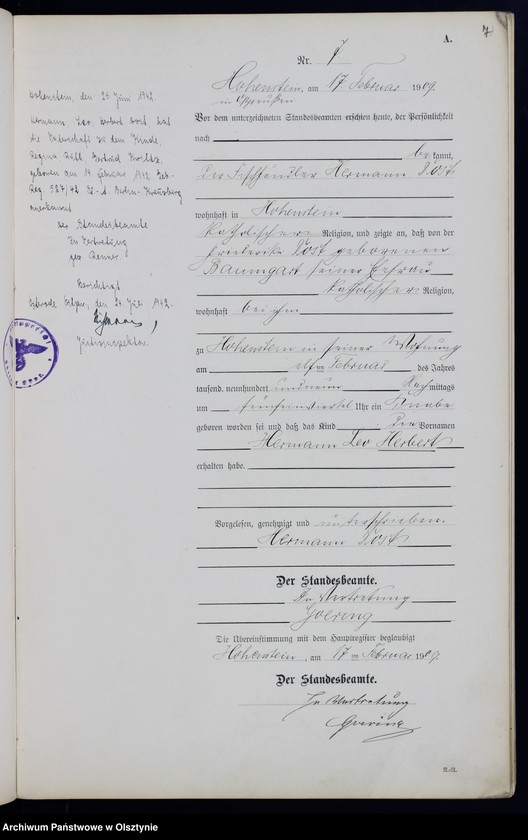 7
A.
Nr. 7
Hohenstein, am 17. Februar 1909.
in Ostpreußen
Vor dem unterzeichneten Standesbeamten erschien heute, der Persönlichkeit
nach
be kannt,
der Fischhändler Hermann Post
wohnhaft in Hohenstein
katholischer Religion, und zeigte an, daß von der
Friederike Post geborenen
Baumgart seiner Ehefrau
katholischer Religion,
wohnhaft bei ihm
zu Hohenstein in seiner Wohnung
am elften Februar des Jahres
tausend neunhundert und neun Nachmittags
um fünfeinviertel Uhr ein Knabe
geboren worden sei und daß das Kind die Vornamen
Hermann Leo Herbert
erhalten habe.
Vorgelesen, genehmigt und unterschrieben.
Hermann Post
Der Standesbeamte.
In Vertretung
Goering
Die Übereinstimmung mit dem Hauptregister beglaubigt
Hohenstein, am 17ten Februar 1909.
Der Standesbeamte.
In Vertretung
Goering
Hohenstein, den 25 Juni 1942.
Hermann Leo Herbert Post, hat
die Vaterschaft zu dem Kinde,
Regina Ruth Gertrud
geboren am 14. Februar 1942 Geb.
Reg. 387/42 St.-A. Berlin-Kreuzberg
anerkannt
Der Standesbeamte
In Vertretung
gez.
Berichtigt
den 24. Juli 1942.
Justizinspektor.
Archiwum Państwowe w Olsztynie